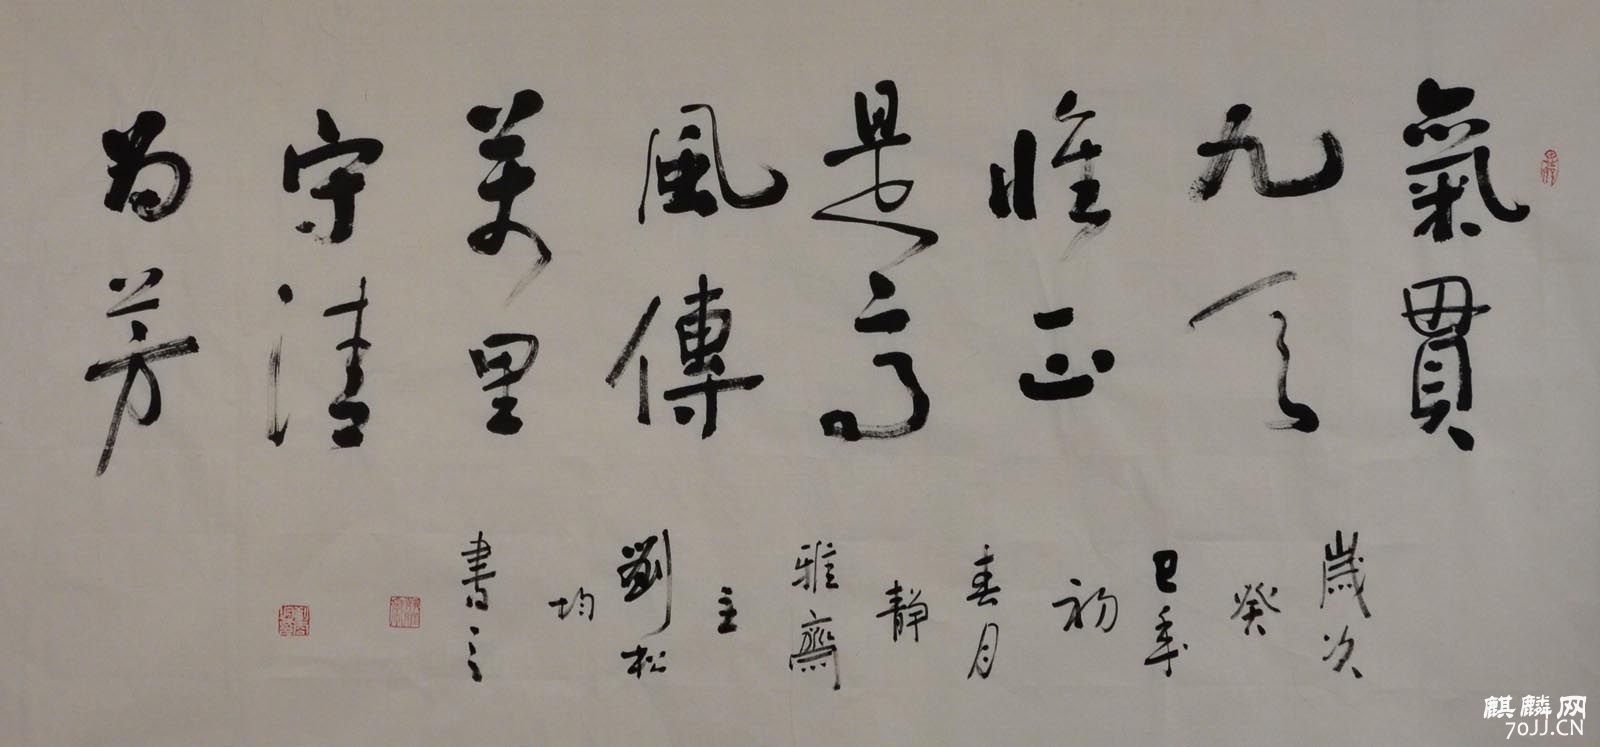 氣貫
九天
惟正
是高
風傳
萬里
守清
為芳
歲次
癸
巳年
初
春月
靜
雅齋
主
劉松
均
書之
麒麟网
70JJ.CN